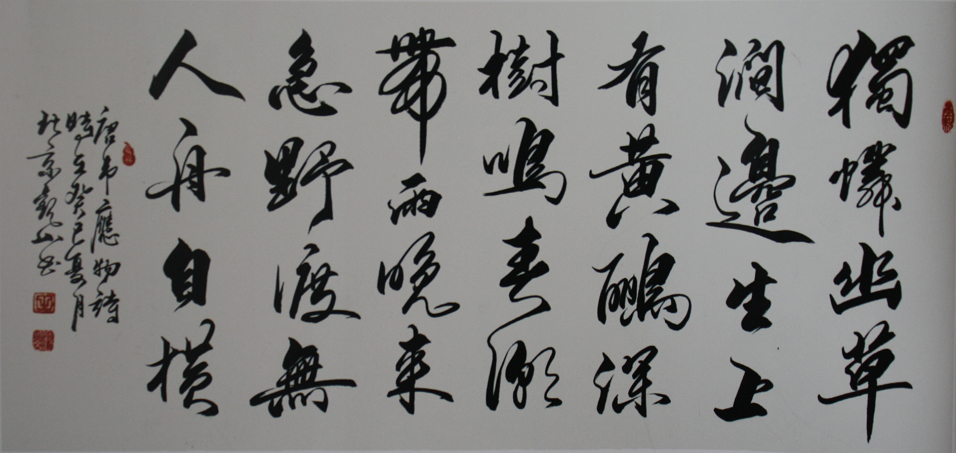 獨憐幽草
澗邊生上
有黃鸝深
樹鳴春潮
帶雨晚來
急野渡無
人舟自橫
唐韋應物詩
時在癸巳夏月
京山书